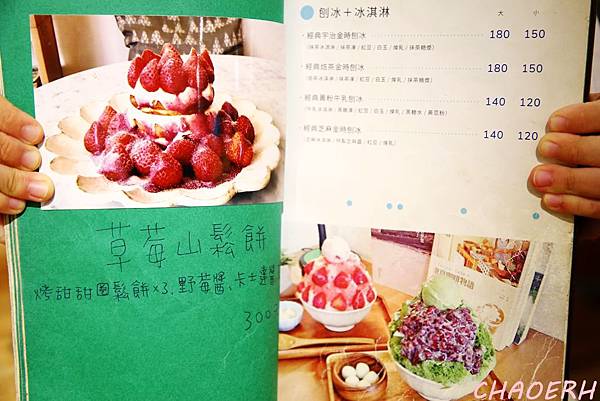 草莓山鬆餅
烤甜甜圈鬆餅×3.野莓醬、卡士達醬
300-
刨冰+冰淇淋
大 小
·經典宇治金時刨冰 180 150
(抹茶冰淇淋/抹茶凍/紅豆/白玉/煉乳/抹茶糖漿)
·經典焙茶金時刨冰 180 150
·經典黃粉牛乳刨冰 140 120
·經典芝麻金時刨冰 140 120
CHAOERH